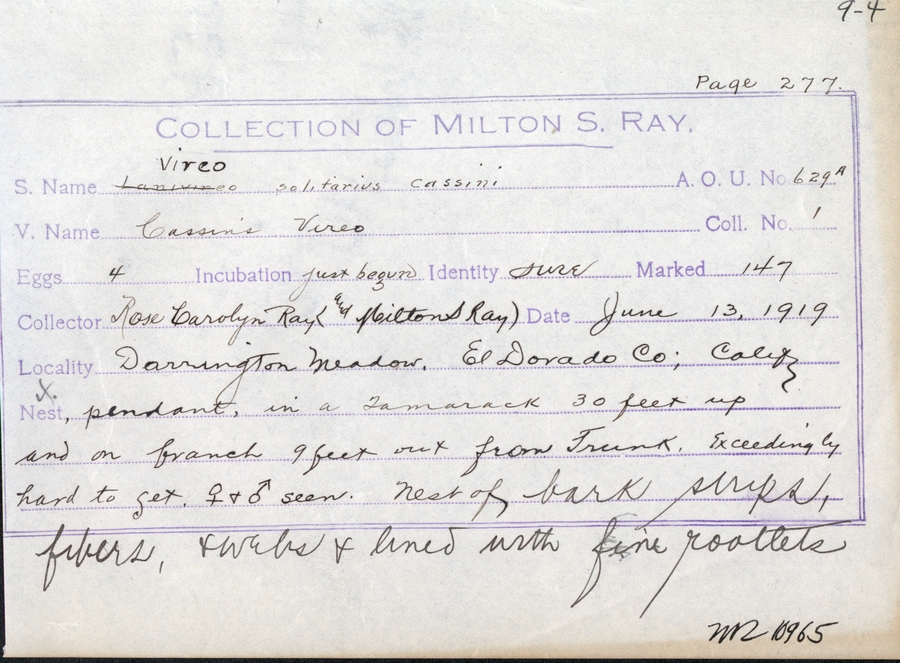 9-4
Page 277.
COLLECTION OF MILTON S. RAY.
Vireo
S. Name Lanivireo solitarius cassini A. O. U. No. 629A
V. Name Cassin's Vireo Coll. No. 1
Eggs 4 Incubation just begun Identity sure Marked 147
Collector Rose Carolyn Ray (and Milton S Ray) Date June 13, 1919
Locality Darrington Meadow, El Dorado Co; Calif
x.
Nest, pendant, in a Tamarack 30 feet up
and on branch 9 feet out from Trunk. Exceedingly
hard to get. ♀ & ♂ seen. Nest of bark strips,
fibers, & webs & lined with fine rootlets
10965